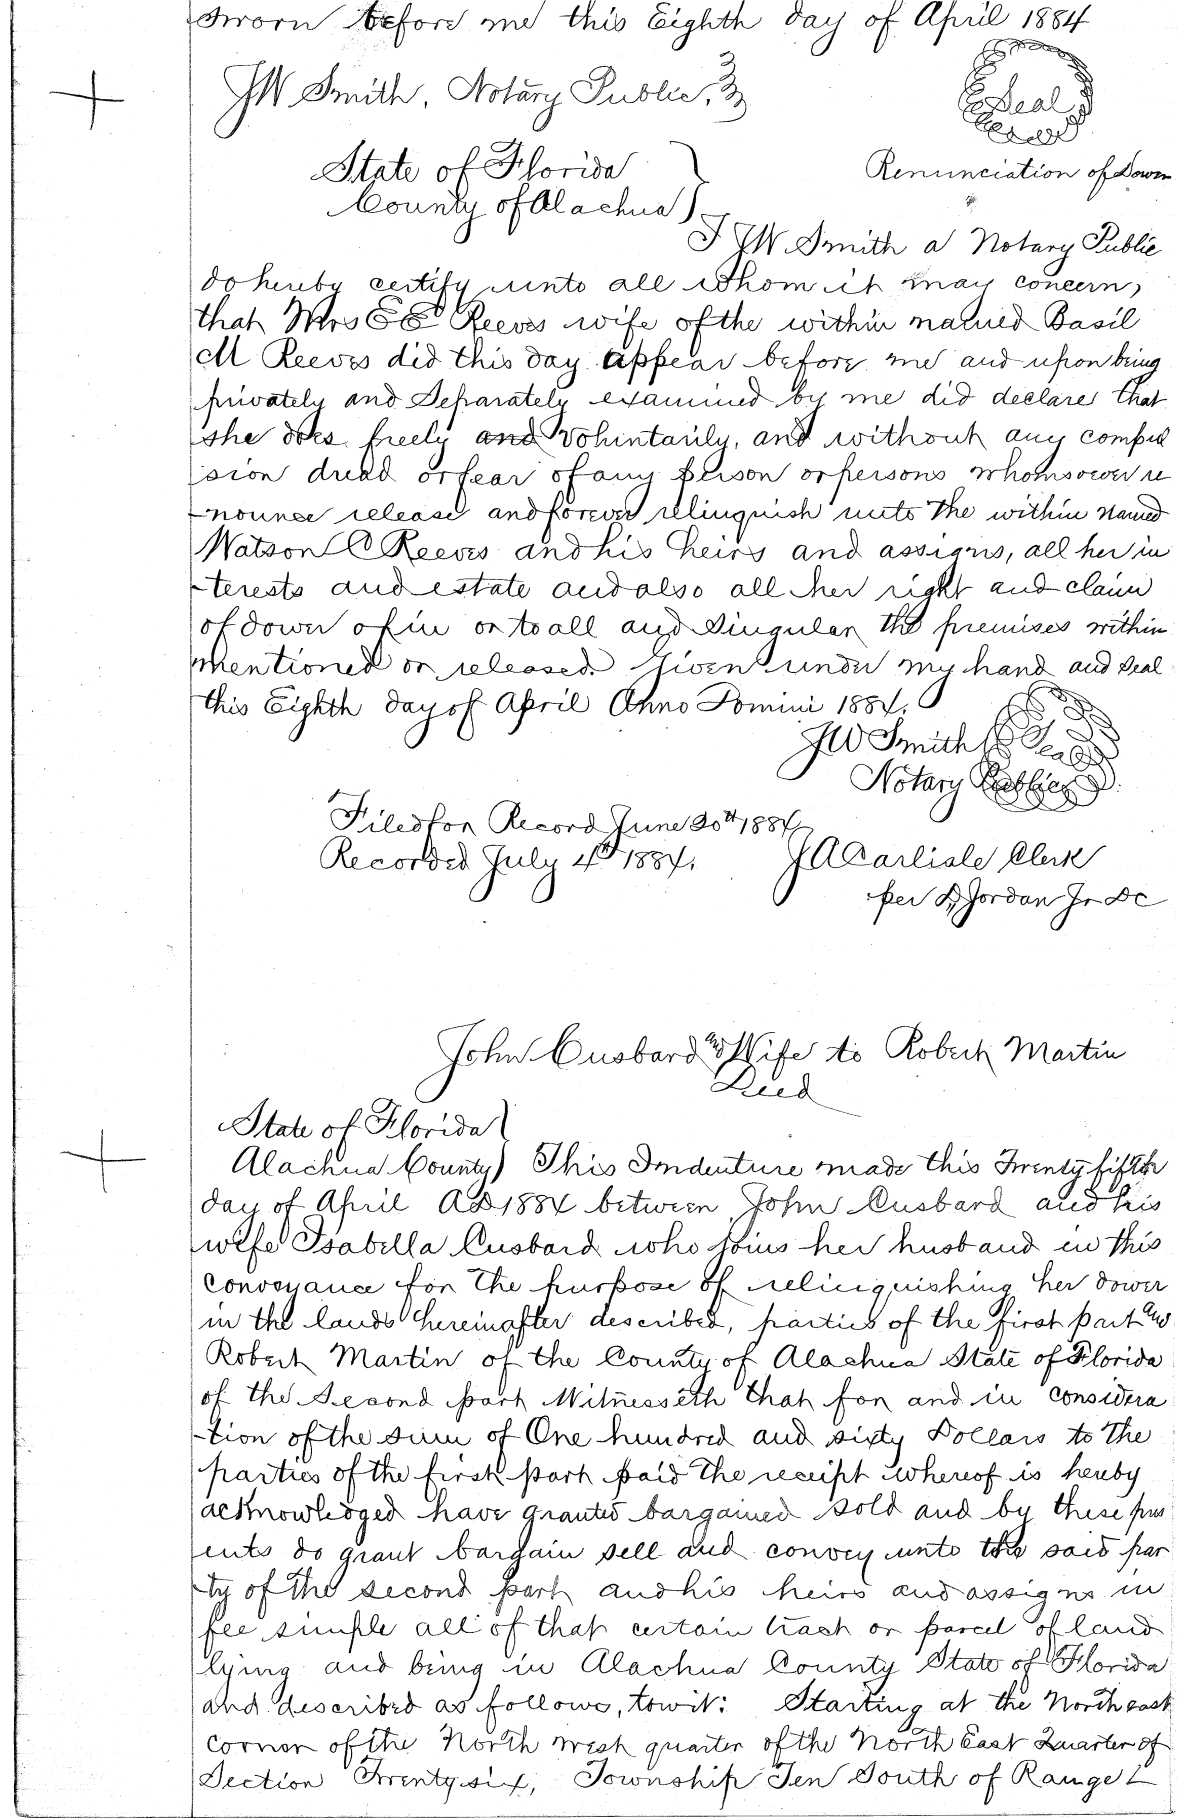 Sworn before me this Eighth day of April 1884
JW Smith, Notary Public,
Seal
State of Florida
County of Alachua
Renunciation of Dower
I JW Smith a Notary Public
do hereby certify unto all whom it may concern,
that Mrs E E Reeves wife of the within named Basil
M Reeves did this day appear before me and upon being
privately and Separately examined by me did declare that
she does freely and voluntarily, and without any compul
sion dread or fear of any person or persons whomsoever re
-nounce release and forever relinquish unto the within named
Watson C Reeves and his heirs and assigns, all her in
-terests and estate and also all her right and claim
of dower of in or to all and Singular the premises within
mentioned or released. Given under my hand and Seal
this Eighth day of April Anno Domini 1884.
JW Smith Seal
Notary Public
Filed for Record June 30th 1884
Recorded July 4th 1884.
J A Carlisle Clerk
per Jordan Jr DC
John Cusbard and Wife to Robert Martin
Deed
State of Florida
Alachua County) This Indenture made this Twenty fifth
day of April AD 1884 between John Cusbard and his
wife Isabella Cusbard who joins her husband in this
conveyance for the purpose of relinquishing her dower
in the lands hereinafter described, parties of the first part and
Robert Martin of the County of Alachua State of Florida
of the Second part Witnesseth that for and in considera
-tion of the sum of One hundred and sixty Dollars to the
parties of the first part paid the receipt whereof is hereby
acknowledged have granted bargained sold and by these pres
ents do grant bargain sell and convey unto the said par
-ty of the second part and his heirs and assigns in
fee simple all of that certain tract or parcel of land
lying and being in Alachua County State of Florida
and described as follows, towit: Starting at the North east
corner of the North west quarter of the North East Quarter of
Section Twenty six, Township Ten South of Range